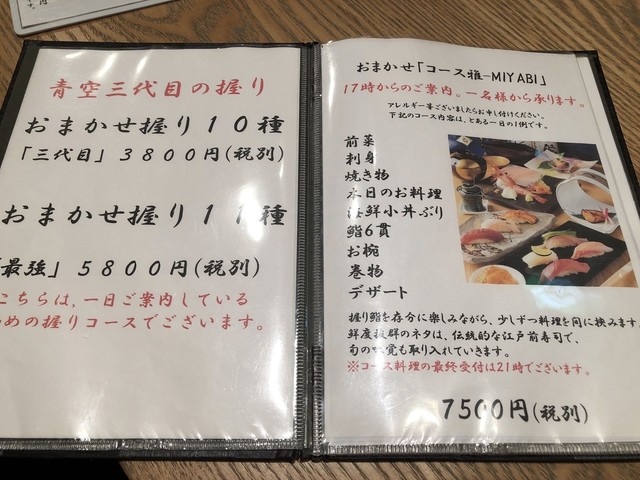 青空三代目の握り
おまかせ握り10種
「三代目」3800円(税別)
おまかせ握り11種
最強」5800円(税別)
こちらは、一日ご案内している
めの握りコースでございます。
おまかせ「コース雅-MIYABI」
17時からのご案内。一名様から承ります。
アレルギー等ございましたらお申し付けください。
下記のコース内容は、とある一日の1例です。
前菜
刺身
焼き物
本日のお料理
海鮮小丼ぶり
鮨6貫
お椀
巻物
デザート
握り鮨を存分に楽しみながら、少しずつ料理を間に挟みます
鮮度抜群のネタは、伝統的な江戸前寿司で、
旬の味覚も取り入れていきます。
※コース料理の最終受付は21時でございます。
7500円(税別)